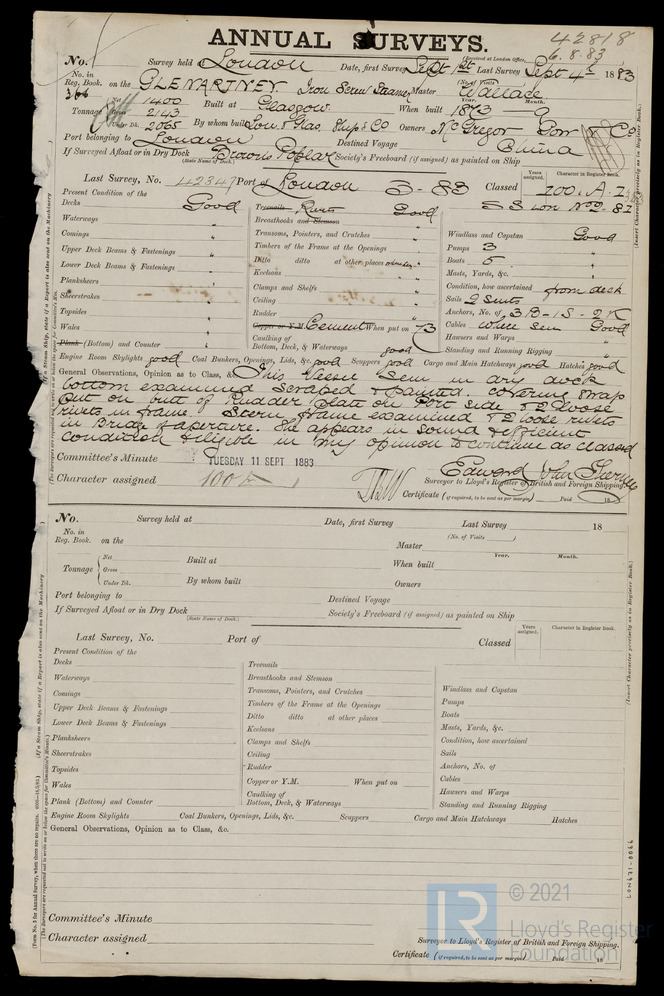 ANNUAL SURVEYS.
42818
6.8.83
(Received at London Office,
No. Survey held at London Date, first Survey Sept 1st Last Survey Sept 4th 1883
(No. of Visits)
No. in Reg. Book. on the GLENARTNEY. Iron Screw Steamer Master Wallace
Tonnage Net 1400 Built at Glasgow When built Year. 1873 Month. 9
Gross 2143
Under Dk. 2065 By whom built Lon & Glas Ship & Co Owners McGregor Gow & Co
Port belonging to London Destined Voyage China
If Surveyed Afloat or in Dry Dock Browns Poplar Society's Freeboard (if assigned) as painted on Ship
(State Name of Dock.)
Last Survey, No. 42347 Port of London 3-83 Classed 100. A. 1
Years assigned. Character in Register Book.
SS Lon No2-82
Present Condition of the
Decks Good
Waterways "
Comings "
Upper Deck Beams & Fastenings "
Lower Deck Beams & Fastenings "
Planksheers
Sheerstrakes "
Topsides "
Wales "
Plank (Bottom) and Counter "
Treenails Rivets Good
Breasthooks and Stemson "
Transoms, Pointers, and Crutches "
Timbers of the Frame at the Openings
Ditto ditto at other places "
Keelsons "
Clamps and Shelfs
Ceiling
Rudder "
Copper or Y.M. Cement When put on 73
Caulking of Bottom, Deck, & Waterways good
Windlass and Capstan Good
Pumps 3 "
Boats 5 "
Masts, Yards, &c. "
Condition, how ascertained from deck
Sails 2 Suits "
Anchors, No. of 3B-1S-2K
Cables where seen Good
Hawsers and Warps "
Standing and Running Rigging "
Engine Room Skylights good Coal Bunkers, Openings, Lids, &c. good Scuppers good Cargo and Main Hatchways good Hatches good
General Observations, Opinion as to Class, &c. This Vessel Seen in dry dock
bottom examined Scraped & painted. covering Strap
put on butt of Rudder plate on Port side & 2 loose
rivets in frame. Stern frame examined & 2 loose rivets
in Bridge of aperture. She appears in sound & efficient
condition & eligible in my opinion to continue as classed
Committee's Minute TUESDAY 11 SEPT 1883
Character assigned 100 A 1
Edward John
Surveyor to Lloyd's Register of British and Foreign Shipping.
Certificate (if required, to be sent as per margin) Paid 18
No. Survey held at Date, first Survey Last Survey 18
(No. of Visits )
No. in Reg. Book. on the Master
Tonnage Net Built at When built Year. Month.
Gross
Under Dk. By whom built Owners
Port belonging to Destined Voyage
If Surveyed Afloat or in Dry Dock Society's Freeboard (if assigned) as painted on Ship
(State Name of Dock.)
Last Survey, No. Port of Classed
Years assigned. Character in Register Book.
Present Condition of the
Decks
Waterways
Comings
Upper Deck Beams & Fastenings
Lower Deck Beams & Fastenings
Planksheers
Sheerstrakes
Topsides
Wales
Plank (Bottom) and Counter
Treenails
Breasthooks and Stemson
Transoms, Pointers, and Crutches
Timbers of the Frame at the Openings
Ditto ditto at other places
Keelsons
Clamps and Shelfs
Ceiling
Rudder
Copper or Y.M. When put on
Caulking of Bottom, Deck, & Waterways
Windlass and Capstan
Pumps
Boats
Masts, Yards, &c.
Condition, how ascertained
Sails
Anchors, No. of
Cables
Hawsers and Warps
Standing and Running Rigging
Engine Room Skylights Coal Bunkers, Openings, Lids, &c. Scuppers Cargo and Main Hatchways Hatches
General Observations, Opinion as to Class, &c.
Committee's Minute
Character assigned
Surveyor to Lloyd's Register of British and Foreign Shipping.
Certificate (if required, to be sent as per margin) Paid 18
LON671-0066
LR
© 2021
Lloyd's Register
Foundation